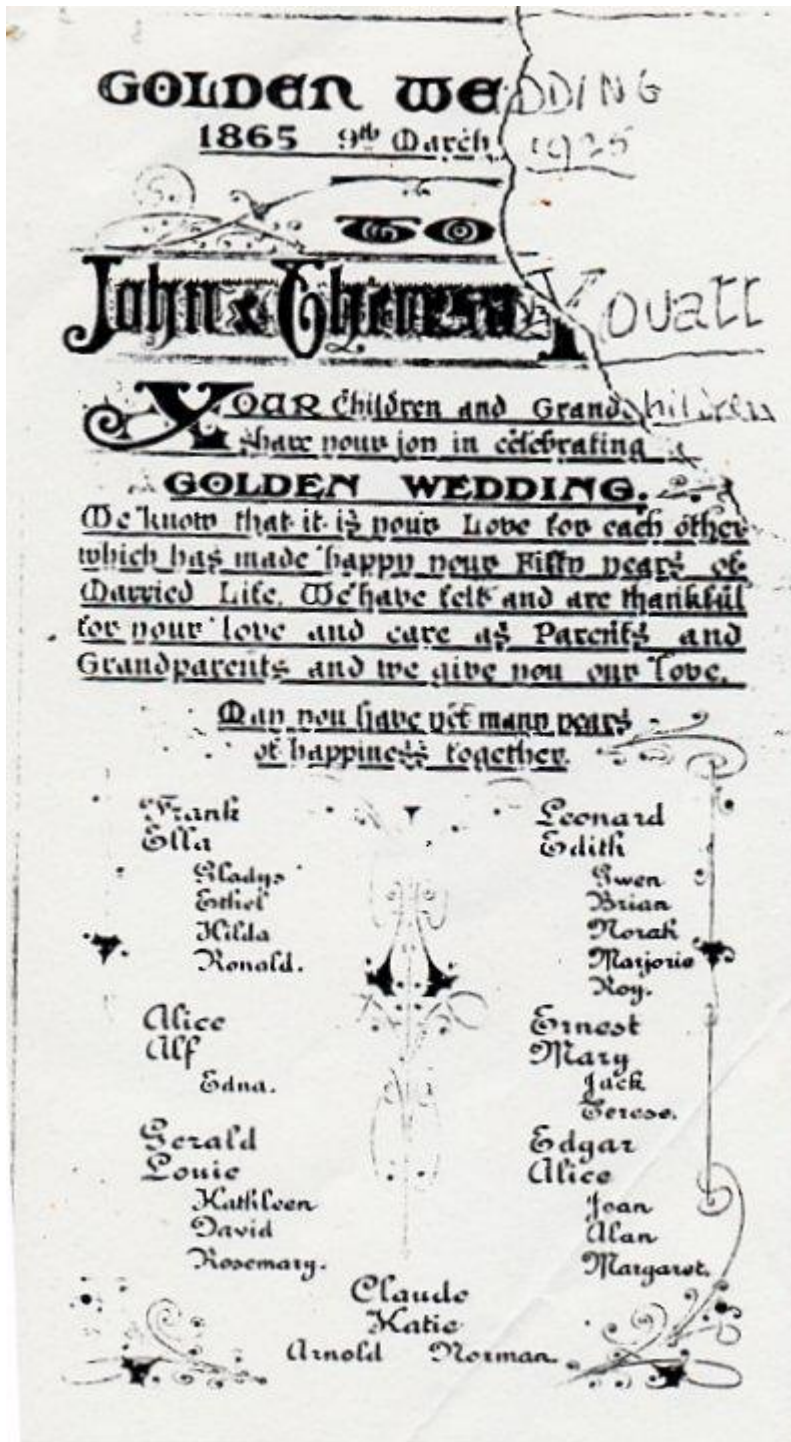 GOLDEN WEDDING
1865 9th March 1935
TO
John & Theresa Youatt
YOUR Children and Grandchildren
share your joy in celebrating
GOLDEN WEDDING.
We know that it is your Love for each other
which has made happy your Fifty years of
Married Life. We have felt and are thankful
for your love and care as Parents and
Grandparents and we give you our love.
May you have yet many years
of happiness together.
Frank
Ella
Gladys
Ethel
Hilda
Ronald.
Alice
Alf
Edna.
Gerald
Louie
Kathleen
David
Rosemary.
Leonard
Edith
Gwen
Brian
Norah
Marjorie
Roy.
Ernest
Mary
Jack
Terese.
Edgar
Alice
Joan
Alan
Margaret.
Claude
Katie
Arnold Norman.